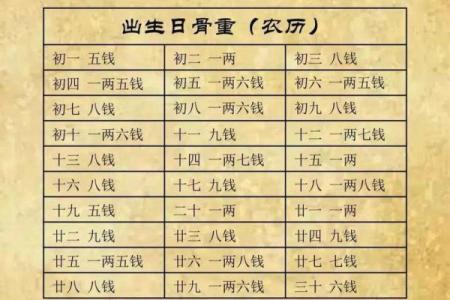 出生日骨重（农历）
初一 五钱 初二 一两 初三 八钱
初四 一两五钱 初五 一两六钱 初六 一两五钱
初七 八钱 初八 一两六钱 初九 八钱
初十 一两六钱 十一 九钱 十二 一两七钱
十三 八钱 十四 一两七钱 十五 一两
十六 八钱 十七 九钱 十八 一两八钱
十九 五钱 二十 一两 廿一 一两
廿二 九钱 廿三 八钱 廿四 九钱
廿五 一两五钱 廿六 一两八钱 廿七 七钱
廿八 八钱 廿九 一两六钱 三十 六钱